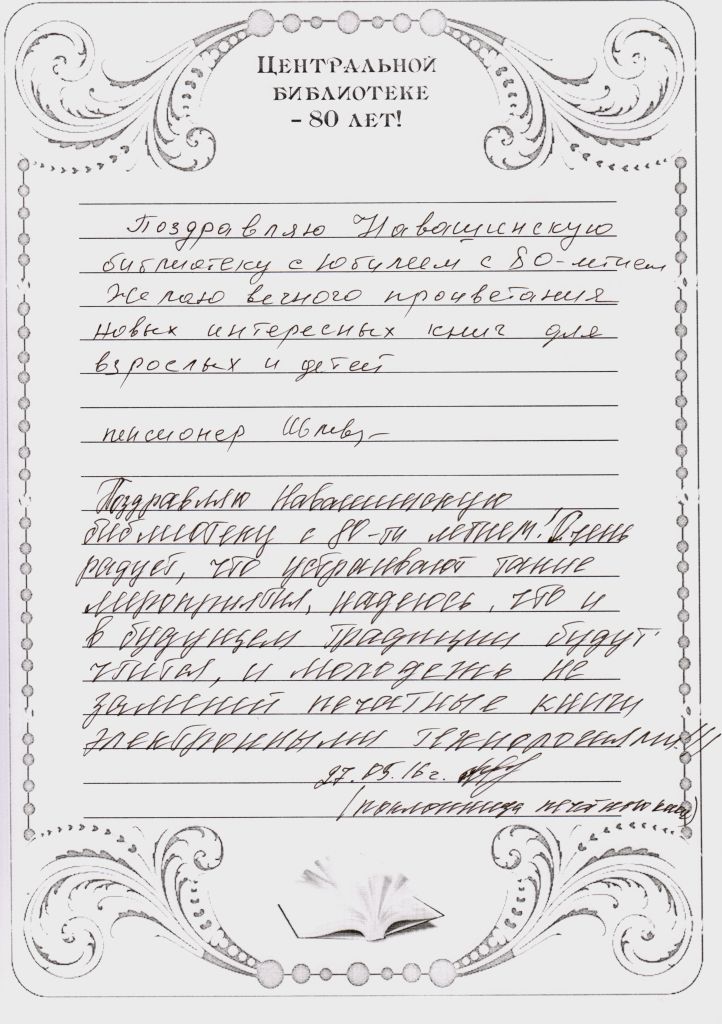 ЦЕНТРАЛЬНОЙ
БИБЛИОТЕКЕ
– 80 ЛЕТ!
Поздравляю Навашинскую
библиотеку с юбилеем с 80-летием
Желаю вечного процветания
новых интересных книг для
взрослых и детей
пенсионер
Поздравляю Навашинскую
библиотеку с 80-ти летием! Очень
радует, что устраивают такие
мероприятия, надеюсь, что и
в будущем традиции будут
чтится, и молодежь не
заменит печатные книги
электронными технологиями!!!
27.05.16 г.
(поклонница печатного